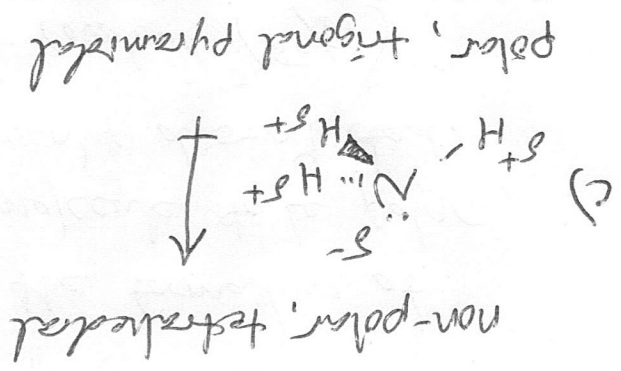 non-polar, tetrahedral
δ-
c) N̈ ··· H δ+
δ+ H H δ+
polar, trigonal pyramidal